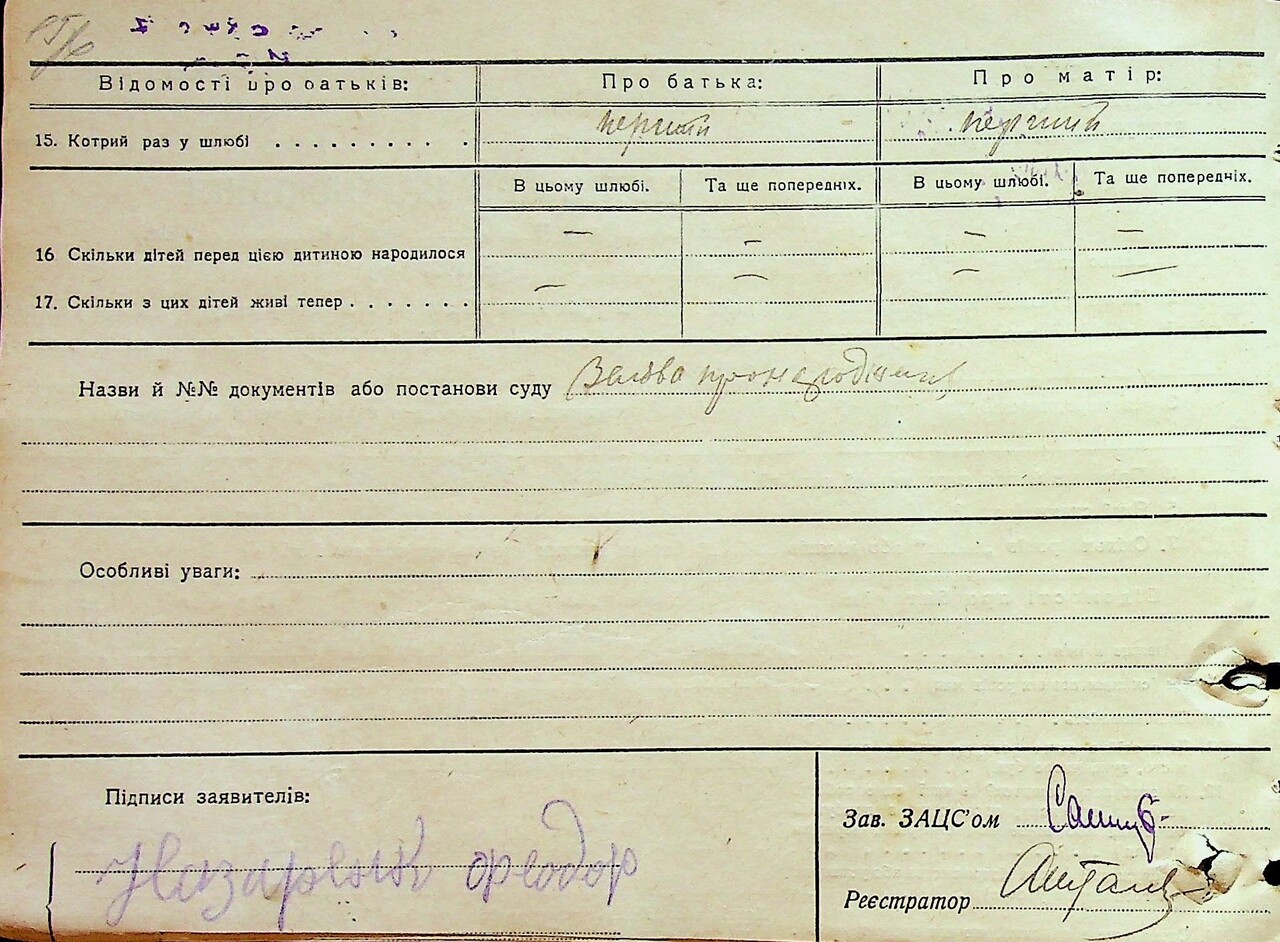 Відомості про батьків: Про батька: Про матір:
15. Котрий раз у шлюбі . . . . . . . . . . перший перший
В цьому шлюбі. Та ще попередніх. В цьому шлюбі. Та ще попередніх.
16 Скільки дітей перед цією дитиною народилося — — — —
17. Скільки з цих дітей живі тепер . . . . . . . — — — —
Назви й №№ документів або постанови суду
Особливі уваги:
Підписи заявителів:
Зав. ЗАЦС'ом
Назарчук Феодор
Реєстратор